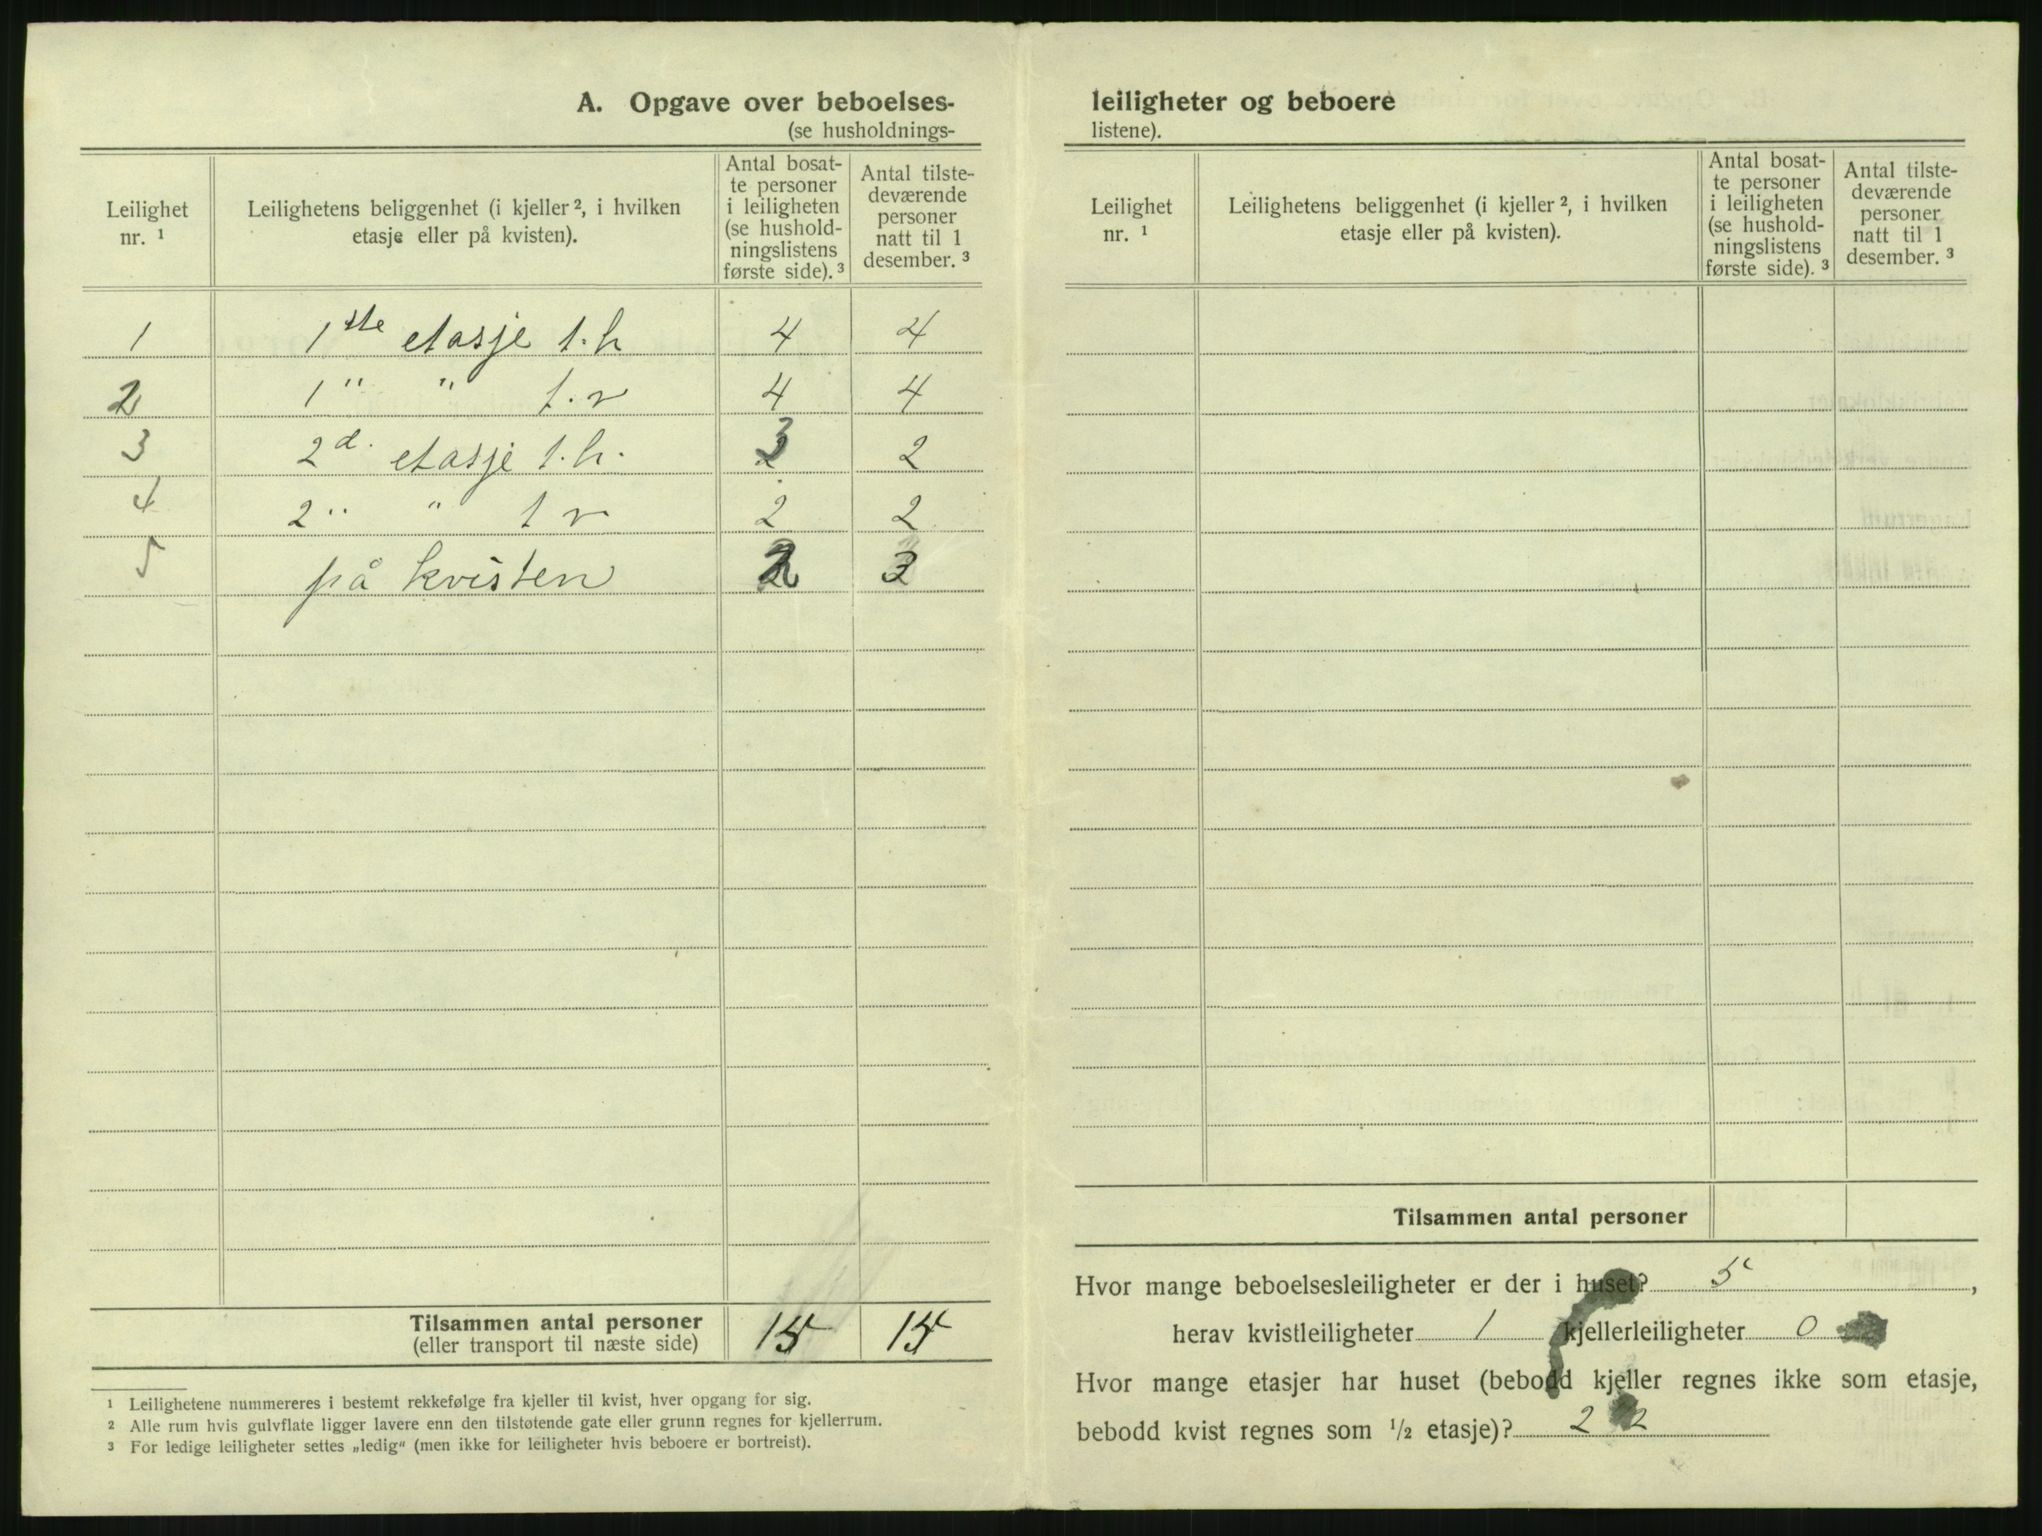 A. Opgave over beboelses-leiligheter og beboere
(se husholdnings-listene).
Leilighet nr. ¹
Leilighetens beliggenhet (i kjeller ², i hvilken etasje eller på kvisten).
Antal bosat-te personer i leiligheten (se hushold-ningslistens første side). ³
Antal tilste-deværende personer natt til 1 desember. ³
1 1ste etasje t.h 4 4
2 1 " " t.v 4 4
3 2d. etasje t.h. 3 2
4 2 " " t v 2 2
5 på kvisten 2 3
Tilsammen antal personer 15 15
(eller transport til næste side)
¹ Leilighetene nummereres i bestemt rekkefølge fra kjeller til kvist, hver opgang for sig.
² Alle rum hvis gulvflate ligger lavere enn den tilstøtende gate eller grunn regnes for kjellerrum.
³ For ledige leiligheter settes „ledig" (men ikke for leiligheter hvis beboere er bortreist).
Leilighet nr. ¹
Leilighetens beliggenhet (i kjeller ², i hvilken etasje eller på kvisten).
Antal bosat-te personer i leiligheten (se hushold-ningslistens første side). ³
Antal tilste-deværende personer natt til 1 desember. ³
Tilsammen antal personer
Hvor mange beboelsesleiligheter er der i huset? 5,
herav kvistleiligheter 1 kjellerleiligheter 0
Hvor mange etasjer har huset (bebodd kjeller regnes ikke som etasje,
bebodd kvist regnes som ½ etasje)? 2